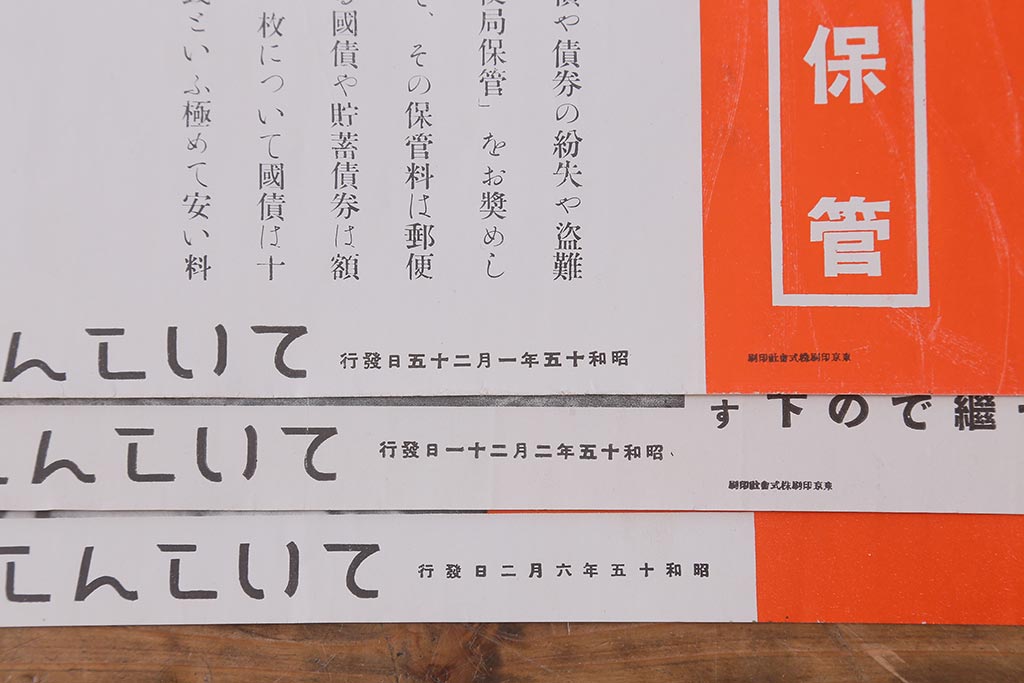 保管
債や債券の紛失や盜難
便局保管」をお奬めし
で、その保管料は郵便
る國債や貯蓄債券は額
枚について國債は十
といふ極めて安い料
行發日五十二月一年五十和昭
んこいて
刷印社會式株刷印京東
す下ので繼
行發日一十二月二年五十和昭
んこいて
刷印社會式株刷印京東
行發日二月六年五十和昭
てんこいて